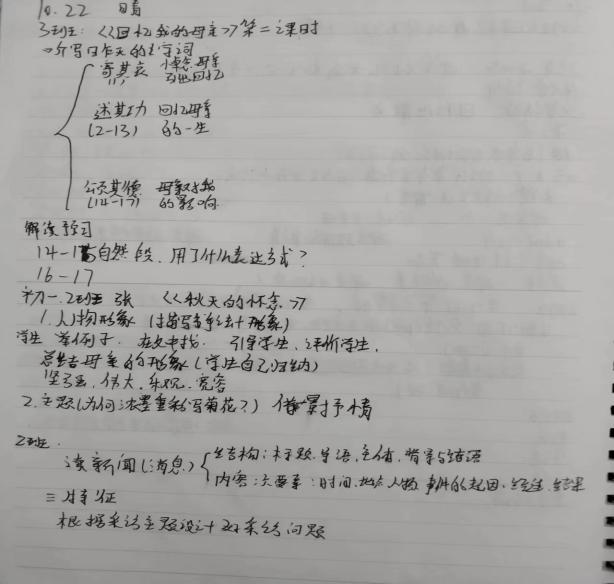 10.22 晴
3班: 《回忆我的母亲》第二课时
听写昨天的生字词
寄其哀 悼念母亲
(1) 引出回忆
述其功 回忆母亲
(2-13) 的一生
颂其德 母亲对我
(14-17) 的影响
解读预习
14-15自然段,用了什么表达方式?
16-17
初一.2班 张 《秋天的怀念》
1.人物形象 (描写手法+形象)
学生 举例子. 在文中找. 引导学生,评价学生,
总结母亲的形象(学生自己归纳)
坚强,伟大,乐观,宽容
2.主题(为何浓墨重彩写菊花?) 借景抒情
2班.
读新闻(消息) 结构:标题.导语,主体,背景与结语
内容:六要素:时间.地点人物 事件的起因.经过.结果
三 特征
根据采访主题设计 采访问题